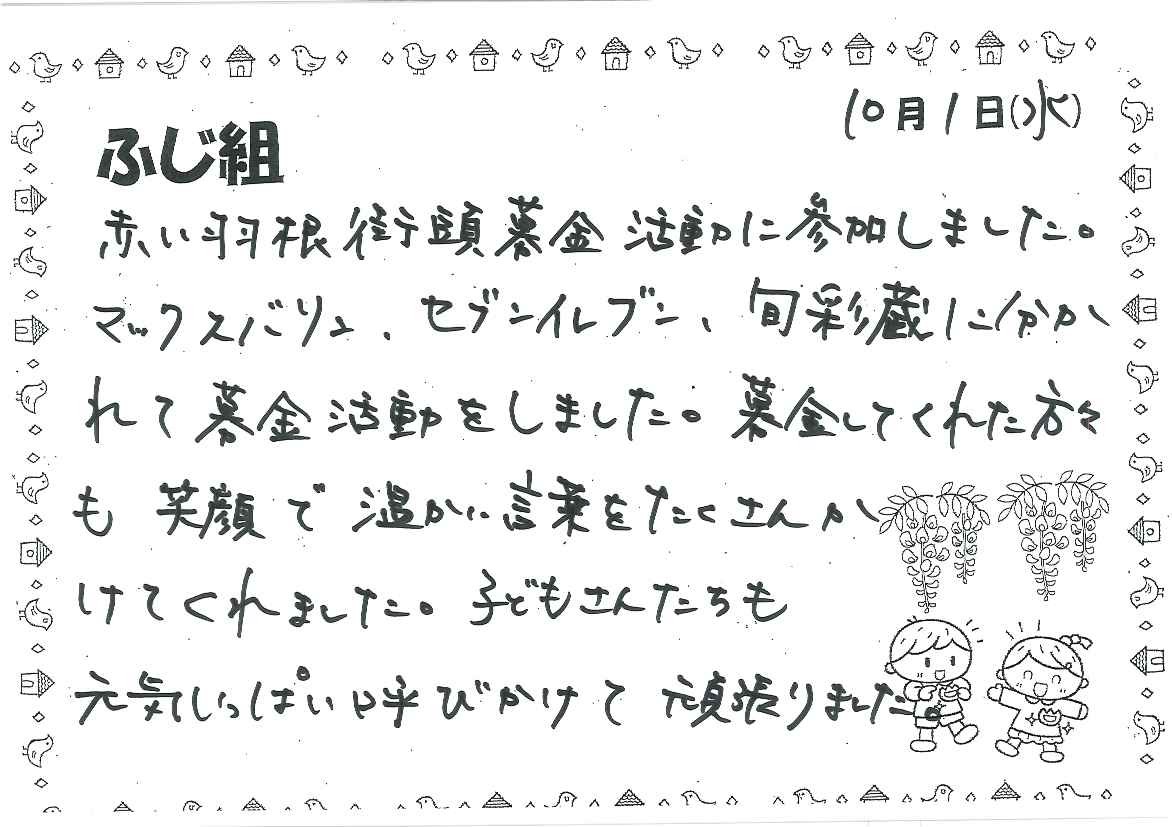 10月1日(水)
ふじ組
赤い羽根街頭募金活動に参加しました。
マックスバリュ、セブンイレブン、旬彩蔵に分か
れて募金活動をしました。募金してくれた方々
も笑顔で温かい言葉をたくさんか
けてくれました。子どもさんたちも
元気いっぱい呼びかけて頑張りました。